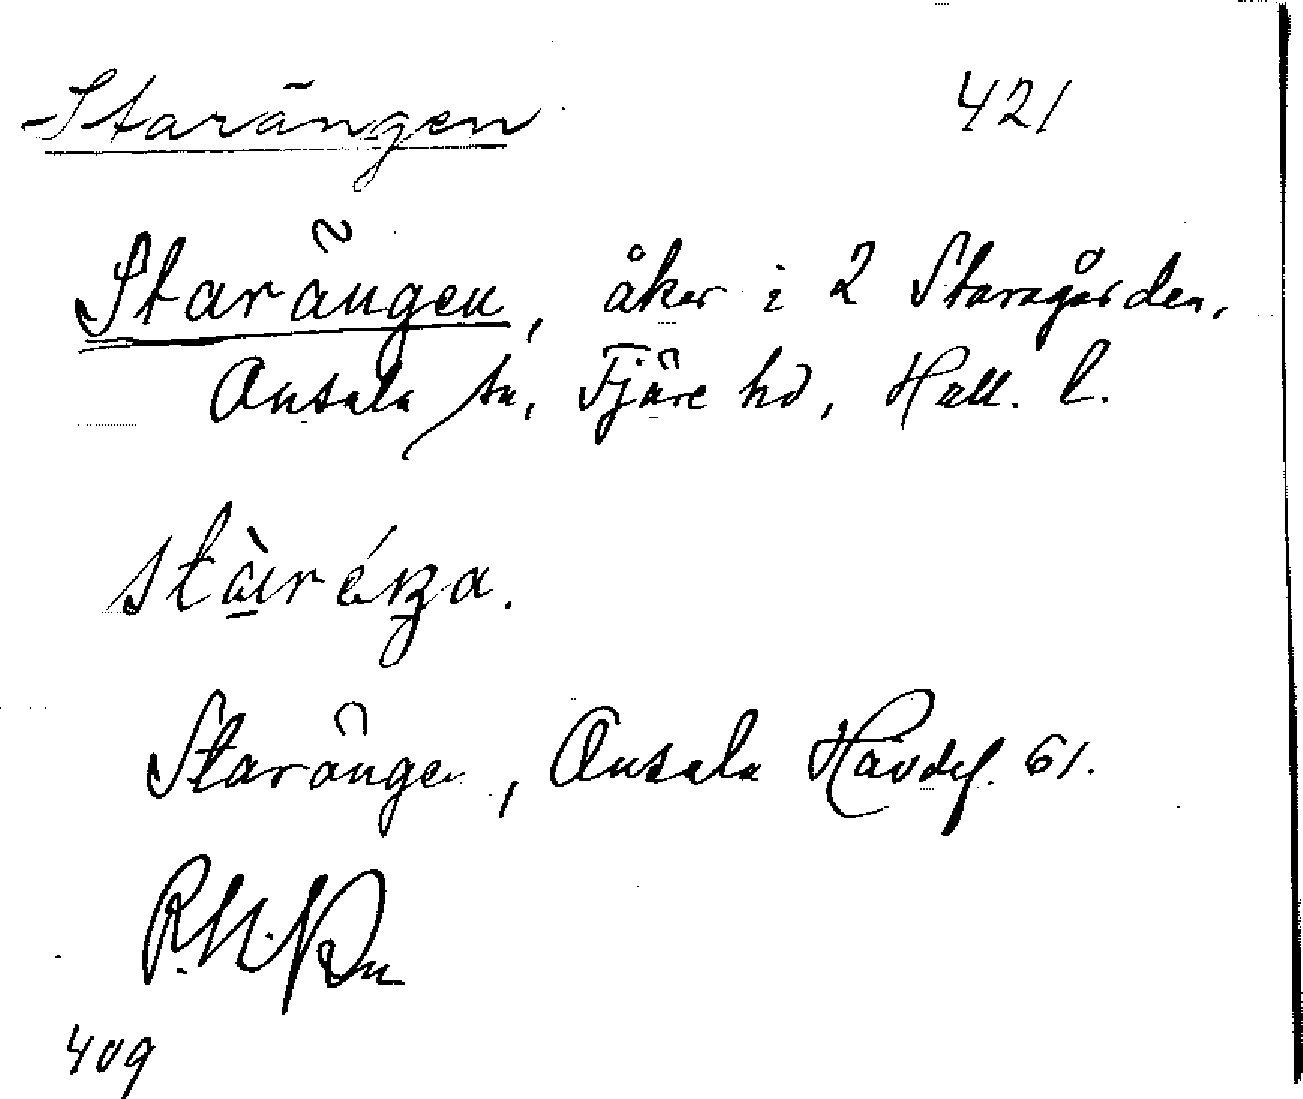 Starängen 421
Starängen, åker i 2 Staragården,
Onsala sn, Fjäre hd, Hall. l.
Starängen, Onsala Hävdef. 61.
409